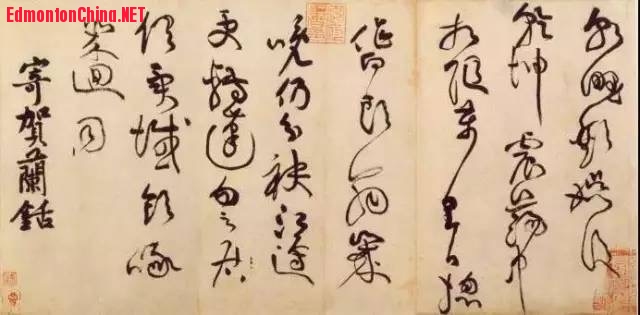 EdmontonChina.NET
朝野歡娛後
乾坤震蕩中
相隨萬里日總
作白頭翁歲
晚仍分袂江邊
更轉蓬勿云君
俱異域飲啄
幾迴同
寄賀蘭銛